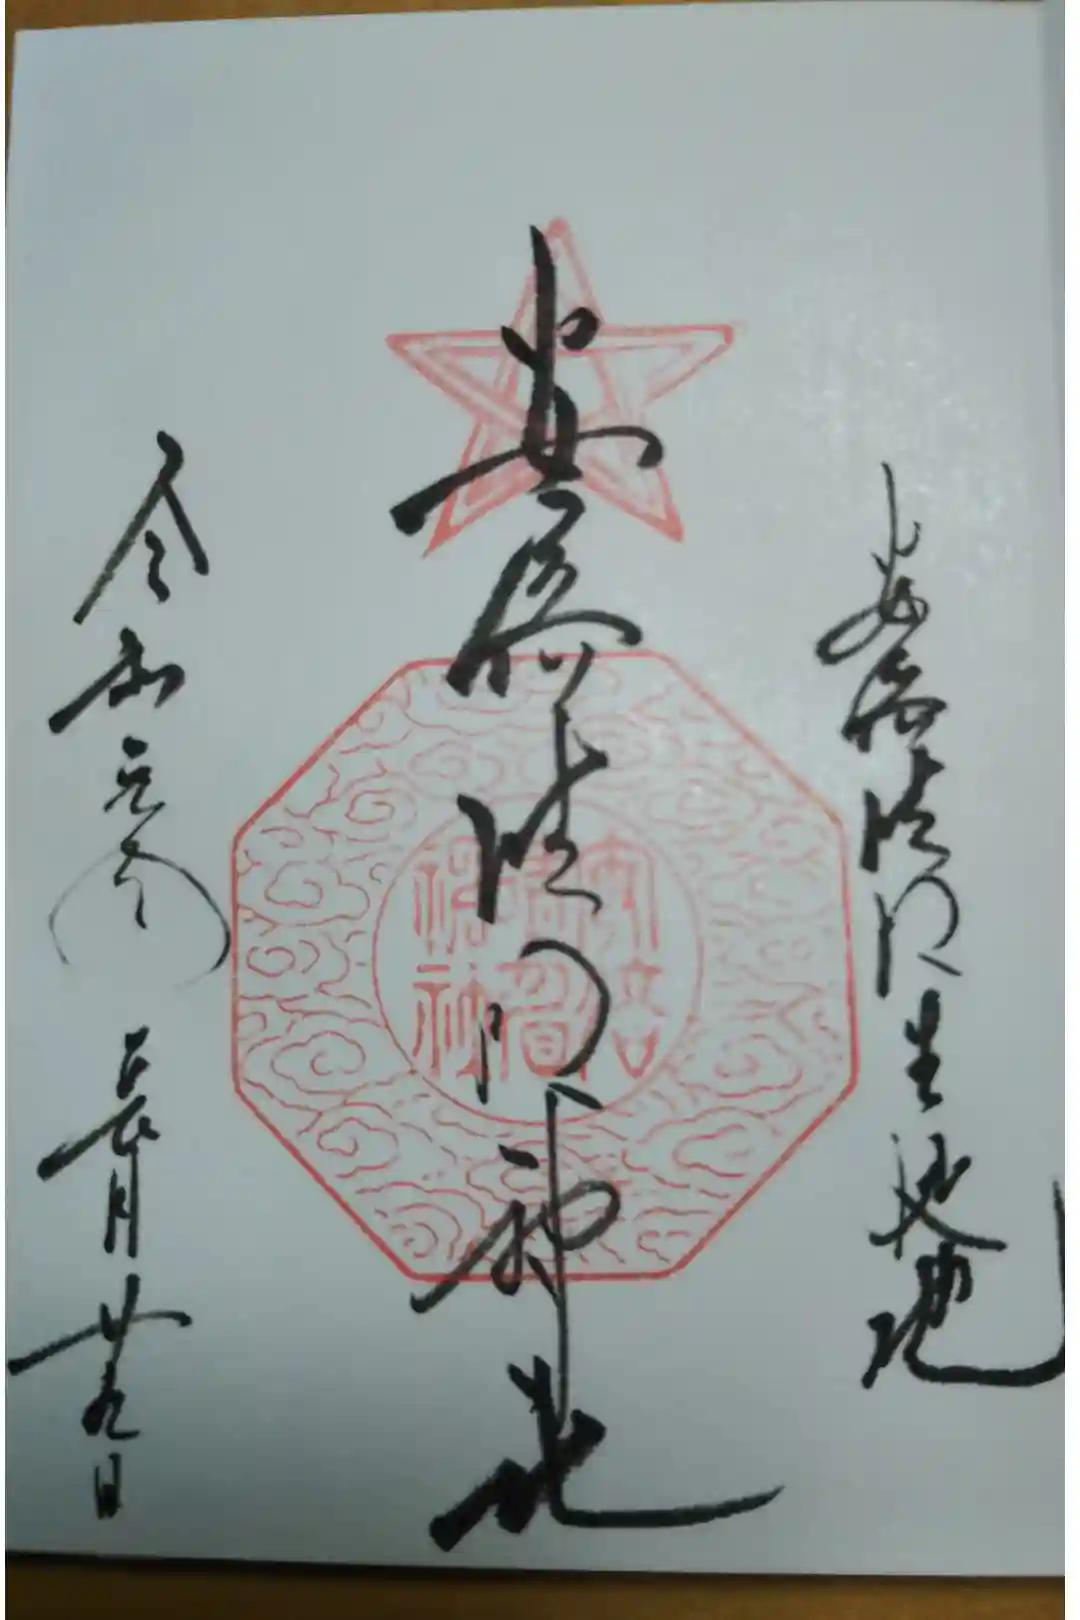 安倍晴明生誕地
安倍晴明神社
令和元年 月廿九日
安倍
晴明
神社